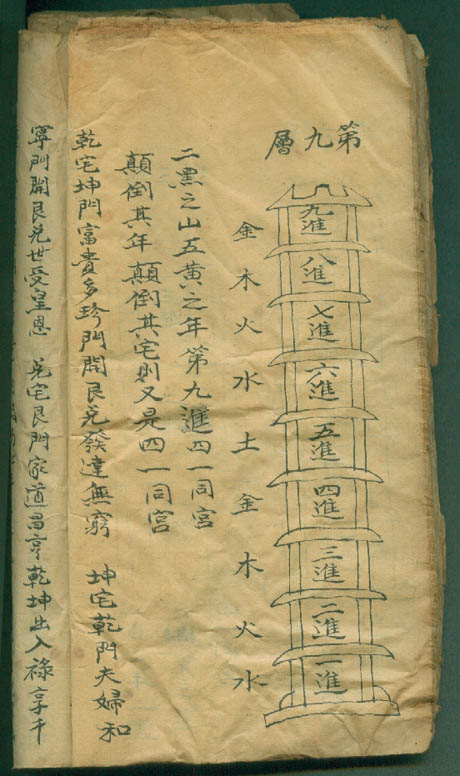 第九層
九進
八進
七進
六進
五進
四進
三進
二進
一進
金木火水土金木火水
二黑之山五黄之年第九進四一同宮
顛倒其年 顛倒其宅則又是四一同宮
乾宅坤門富貴多珍門開艮兌發達無窮 坤宅乾門夫婦和
寧門開艮兌世受皇恩 兌宅艮門家道昌亨乾坤出入祿享千